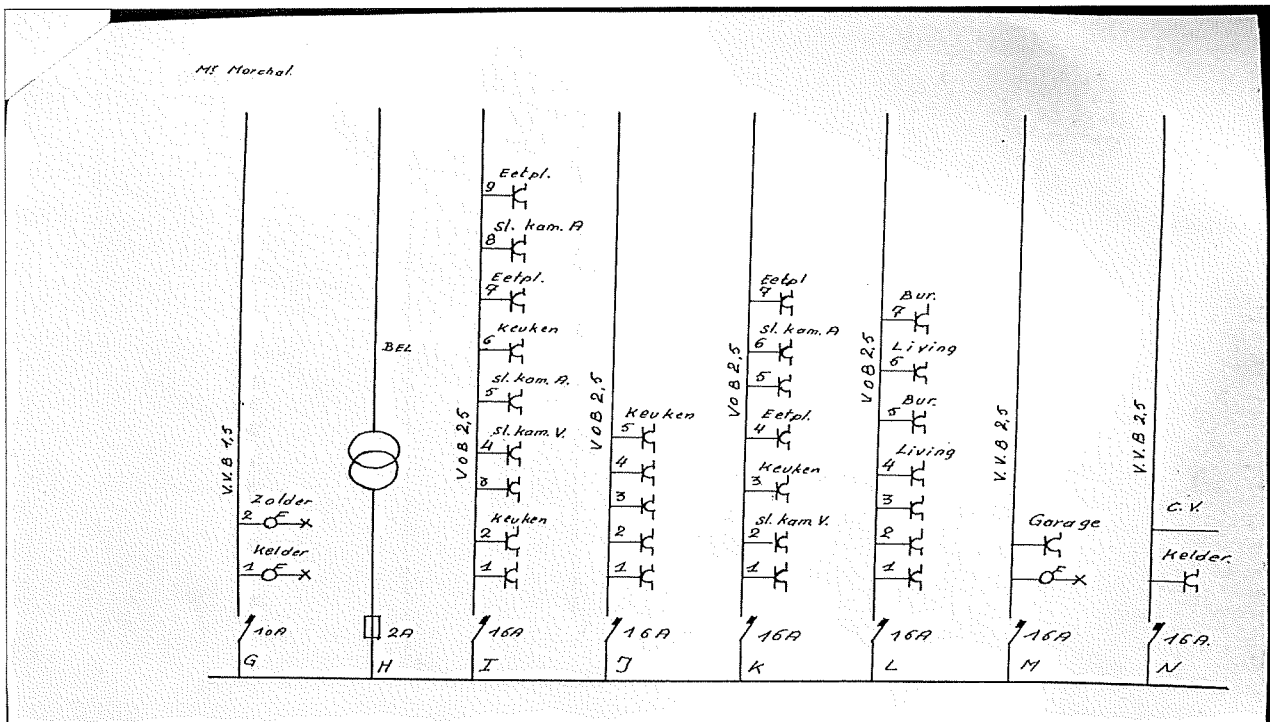 Mr Marchal.
V.V.B 1,5
2 Zolder
1 Kelder
10A
G
BEL
2A
H
VOB 2,5
9 Eetpl.
8 sl. kam. A
7 Eetpl.
6 Keuken
5 sl. kam. A.
4 sl. kam. V.
3
2 Keuken
1
16A
I
VOB 2,5
5 Keuken
4
3
2
1
16A
J
VOB 2,5
7 Eetpl
6 sl. kam. A
5
4 Eetpl.
3 Keuken
2 sl. kam V.
1
16A
K
VOB 2,5
7 Bur.
6 Living
5 Bur.
4 Living
3
2
1
16A
L
V.V.B 2,5
Garage
16A
M
V.V.B 2,5
C.V.
Kelder.
16A.
N